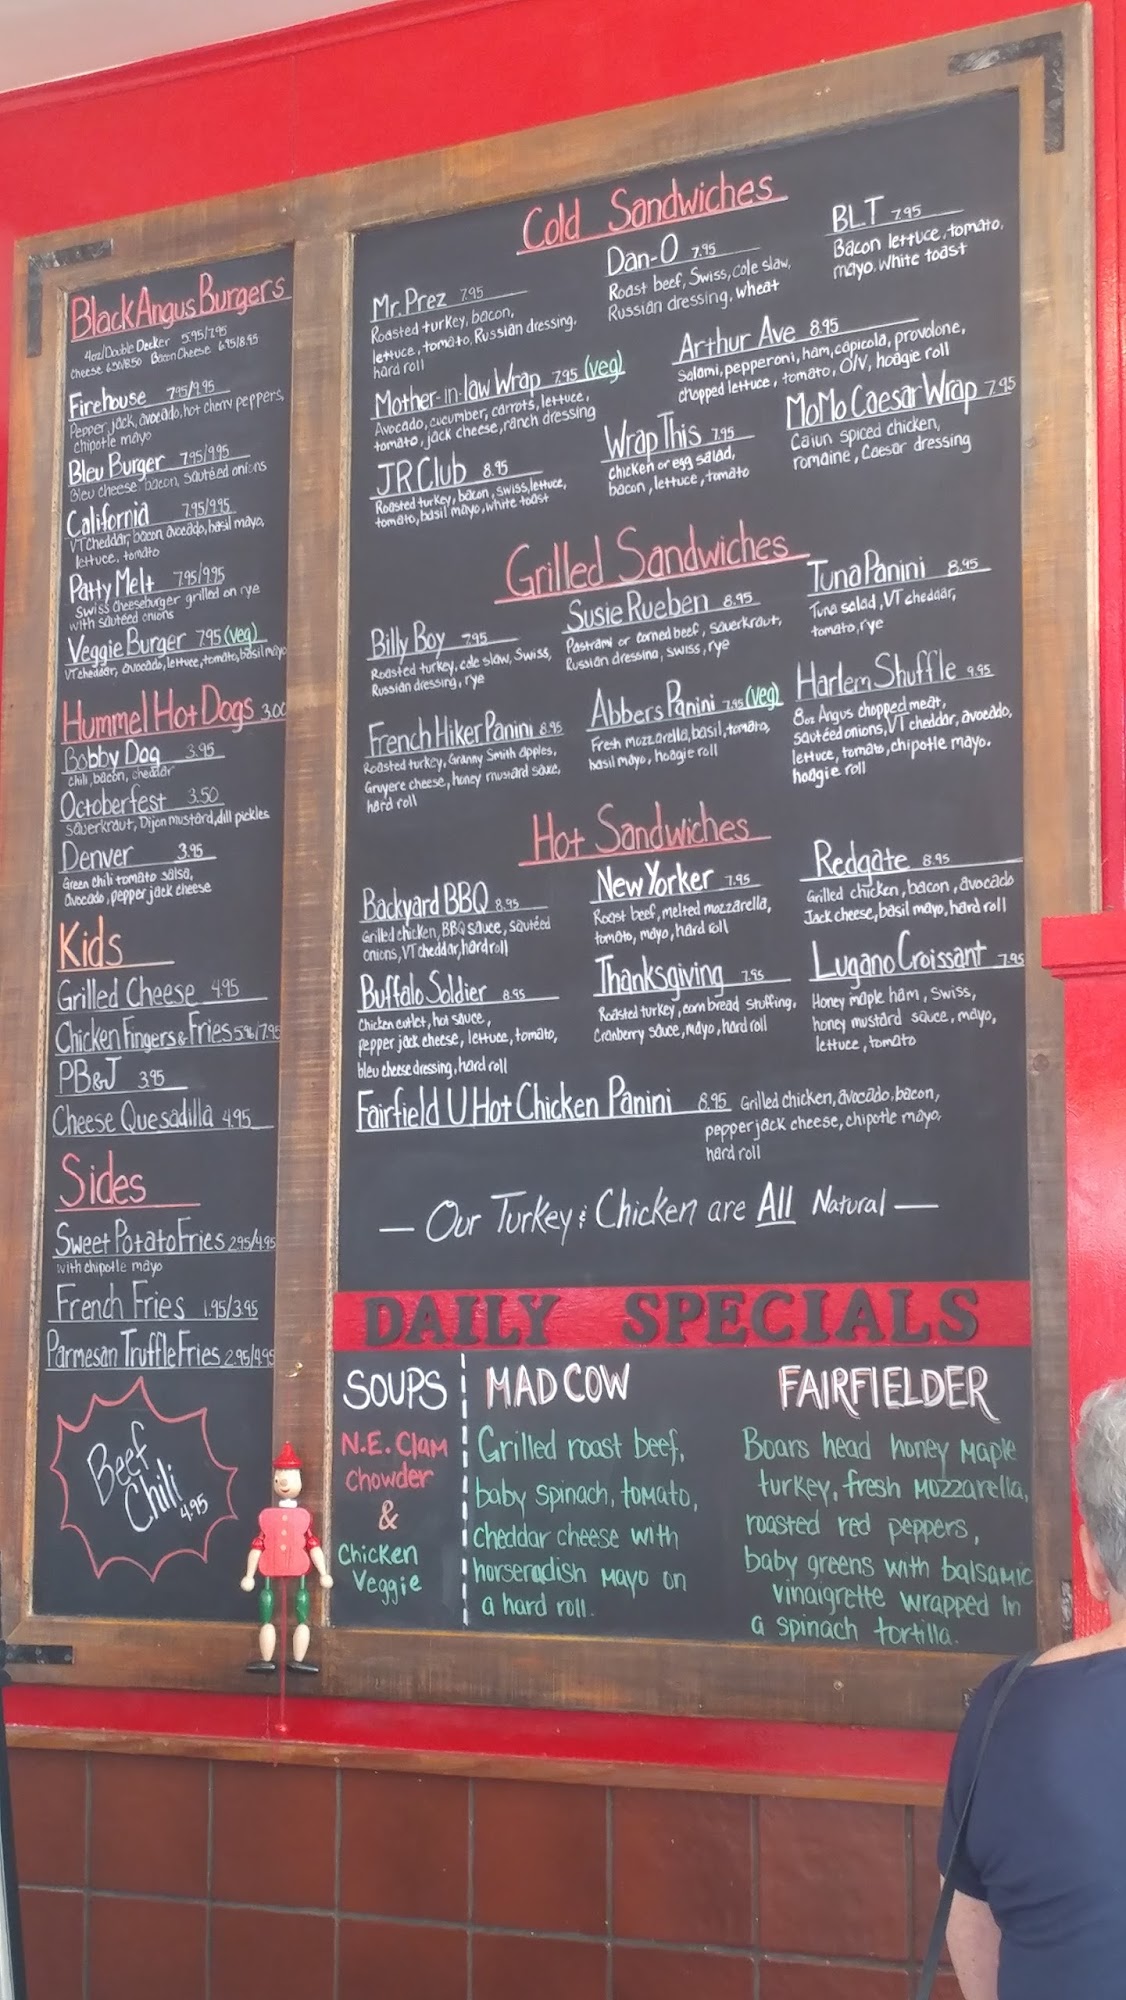 Black Angus Burgers
4oz/Double Decker 5.95/7.95
Cheese 6.50/8.50 Bacon Cheese 6.95/8.95
Firehouse 7.95/9.95
Pepper jack, avocado, hot cherry peppers,
chipotle mayo
Bleu Burger 7.95/9.95
Bleu cheese bacon, sautéed onions
California 7.95/9.95
VT cheddar, bacon avocado, basil mayo,
lettuce, tomato
Patty Melt 7.95/9.95
Swiss Cheeseburger grilled on rye
with sautéed onions
Veggie Burger 7.95 (veg)
VT cheddar, avocado, lettuce, tomato, basil mayo
Hummel Hot Dogs 3.00
Bobby Dog 3.95
chili, bacon, cheddar
Octoberfest 3.50
sauerkraut, Dijon mustard, dill pickles
Denver 3.95
Green chili tomato salsa,
avocado, pepper jack cheese
Kids
Grilled Cheese 4.95
Chicken Fingers & Fries 5.96/7.95
PB&J 3.95
Cheese Quesadilla 4.95
Sides
Sweet Potato Fries 2.95/4.95
with chipotle mayo
French Fries 1.95/3.95
Parmesan Truffle Fries 2.95/4.95
Beef
Chili
4.95
Cold Sandwiches
Mr. Prez 7.95
Roasted turkey, bacon,
lettuce, tomato, Russian dressing,
hard roll
Dan-O 7.95
Roast beef, Swiss, cole slaw,
Russian dressing, wheat
BLT 7.95
Bacon lettuce, tomato,
mayo. White toast
Mother-in-law Wrap 7.95 (veg)
Avocado, cucumber, carrots, lettuce,
tomato, jack cheese, ranch dressing
Arthur Ave 8.95
Salami, pepperoni, ham, capicola, provolone,
chopped lettuce, tomato, O/V, hoagie roll
JR Club 8.95
Roasted turkey, bacon, swiss, lettuce,
tomato, basil mayo, white toast
Wrap This 7.95
Chicken or egg salad,
bacon, lettuce, tomato
MoMo Caesar Wrap 7.95
Cajun spiced chicken,
romaine, Caesar dressing
Grilled Sandwiches
Billy Boy 7.95
Roasted turkey, cole slaw, Swiss,
Russian dressing, rye
Susie Rueben 8.95
Pastrami or corned beef, sauerkraut,
Russian dressing, swiss, rye
Tuna Panini 8.95
Tuna salad, VT cheddar,
tomato, rye
French Hiker Panini 8.95
Roasted turkey, Granny Smith apples,
Gruyere cheese, honey mustard sauce,
hard roll
Abbers Panini 7.95 (veg)
Fresh mozzarella, basil, tomato,
basil mayo, hoagie roll
Harlem Shuffle 9.95
8oz Angus chopped meat,
sautéed onions, VT cheddar, avocado,
lettuce, tomato, chipotle mayo.
hoagie roll
Hot Sandwiches
Backyard BBQ 8.95
Grilled chicken, BBQ sauce, sautéed
onions, VT cheddar, hard roll
New Yorker 7.95
Roast beef, melted mozzarella,
tomato, mayo, hard roll
Redgate 8.95
Grilled chicken, bacon, avocado
Jack cheese, basil mayo, hard roll
Buffalo Soldier 8.95
Chicken cutlet, hot sauce,
pepper jack cheese, lettuce, tomato,
bleu cheese dressing, hard roll
Thanksgiving 7.95
Roasted turkey, corn bread stuffing,
Cranberry sauce, mayo, hard roll
Lugano Croissant 7.95
Honey maple ham, Swiss,
honey mustard sauce, mayo,
lettuce, tomato
Fairfield U Hot Chicken Panini 8.95 Grilled chicken, avocado, bacon,
pepper jack cheese, chipotle mayo,
hard roll
— Our Turkey & Chicken are All Natural —
DAILY SPECIALS
SOUPS
N.E. Clam
Chowder
&
Chicken
Veggie
MAD COW
Grilled roast beef,
baby spinach, tomato,
cheddar cheese with
horseradish mayo on
a hard roll.
FAIRFIELDER
Boars head honey maple
turkey, fresh mozzarella,
roasted red peppers,
baby greens with balsamic
vinaigrette wrapped in
a spinach tortilla.